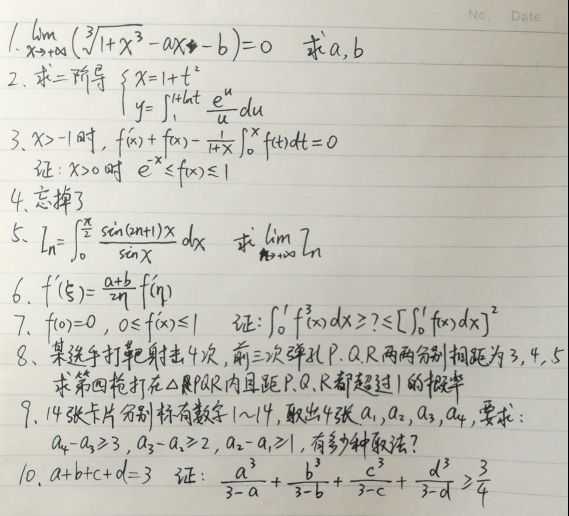 No. Date
1. lim x→+∞ (∛(1+x³) -ax-b)=0 求a,b
2、求二阶导 { x=1+t²
y=∫₁^(1+lnt) e^u/u du
3、x>-1时, f'(x)+f(x)-1/(1+x) ∫₀^x f(t)dt=0
证:x>0时 e^(-x)≤f(x)≤1
4、忘掉了
5、In=∫₀^(π/2) sin(2n+1)x/sinx dx 求 lim n→+∞ In
6、f'(ξ)=(a+b)/2η f'(η)
7、f(0)=0, 0≤f'(x)≤1 证:∫₀¹ f³(x)dx≥?≤[∫₀¹ f(x)dx]²
8、某选手打靶射击4次,前三次弹孔P.Q.R两两分别相距为3,4,5
求第四枪打在△PQR内且距P.Q.R都超过1的概率
9、14张卡片分别标有数字1~14,取出4张a₁,a₂,a₃,a₄,要求:
a₄-a₃≥3, a₃-a₂≥2, a₂-a₁≥1,有多少种取法?
10、a+b+c+d=3 证: a³/(3-a) + b³/(3-b) + c³/(3-c) + d³/(3-d) ≥ 3/4